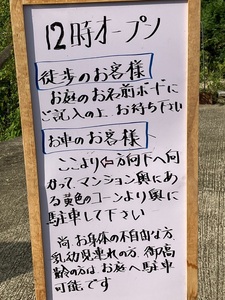 12時オープン
徒歩のお客様
お庭のお名前ボードに
ご記入の上、お待ち下さい
お車のお客様
ここより⇦方向下へ向
かって、マンション奥にあ
る黄色のコーンより奥に
駐車して下さい
尚、お身体の不自由な方
乳幼児連れの方、御高
齢の方は、お庭へ駐車
可能です